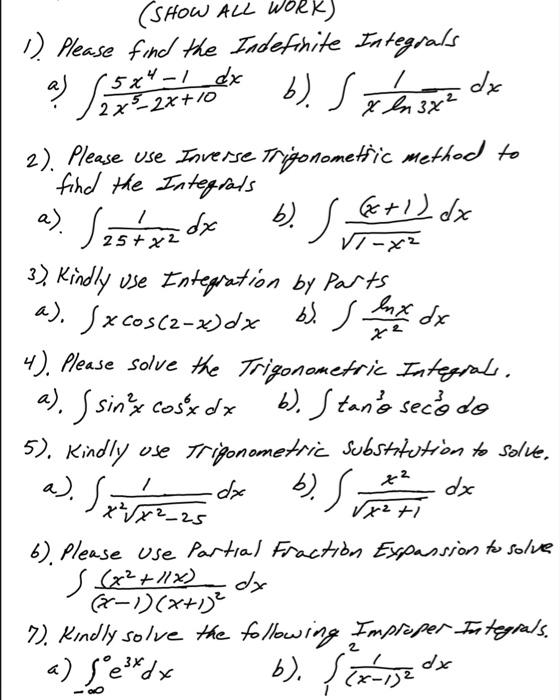 (SHOW ALL WORK)
1). Please find the Indefinite Integrals
a) ∫ (5x⁴ - 1)/(2x⁵ - 2x + 10) dx b). ∫ 1/(x ln 3x²) dx
2). Please use Inverse Trigonometric method to
find the Integrals
a). ∫ 1/(25 + x²) dx b). ∫ (x+1)/√(1-x²) dx
3). Kindly use Integration by Parts
a). ∫ x cos(2-x) dx b). ∫ ln x/x² dx
4). Please solve the Trigonometric Integrals.
a). ∫ sin²x cos⁶x dx b). ∫ tan³θ sec³θ dθ
5). Kindly use Trigonometric Substitution to solve.
a). ∫ 1/(x²√(x²-25)) dx b). ∫ x²/√(x²+1) dx
6). Please use Partial Fraction Expansion to solve
∫ (x² + 11x)/((x-1)(x+1)²) dx
7). Kindly solve the following Improper Integrals.
a) ∫_{-∞}^{0} e^{3x} dx b). ∫_{1}^{2} 1/(x-1)² dx